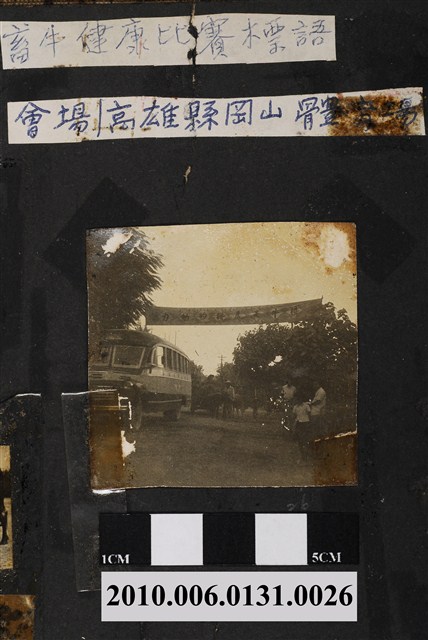 畜牛健康比賽標語
會場|高雄縣岡山體育場
26
1CM
5CM
2010.006.0131.0026